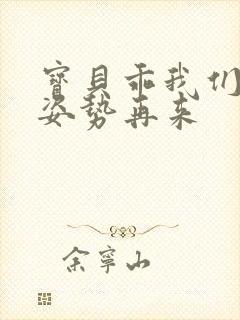 寶貝乖我们
姿势再来
余寧山